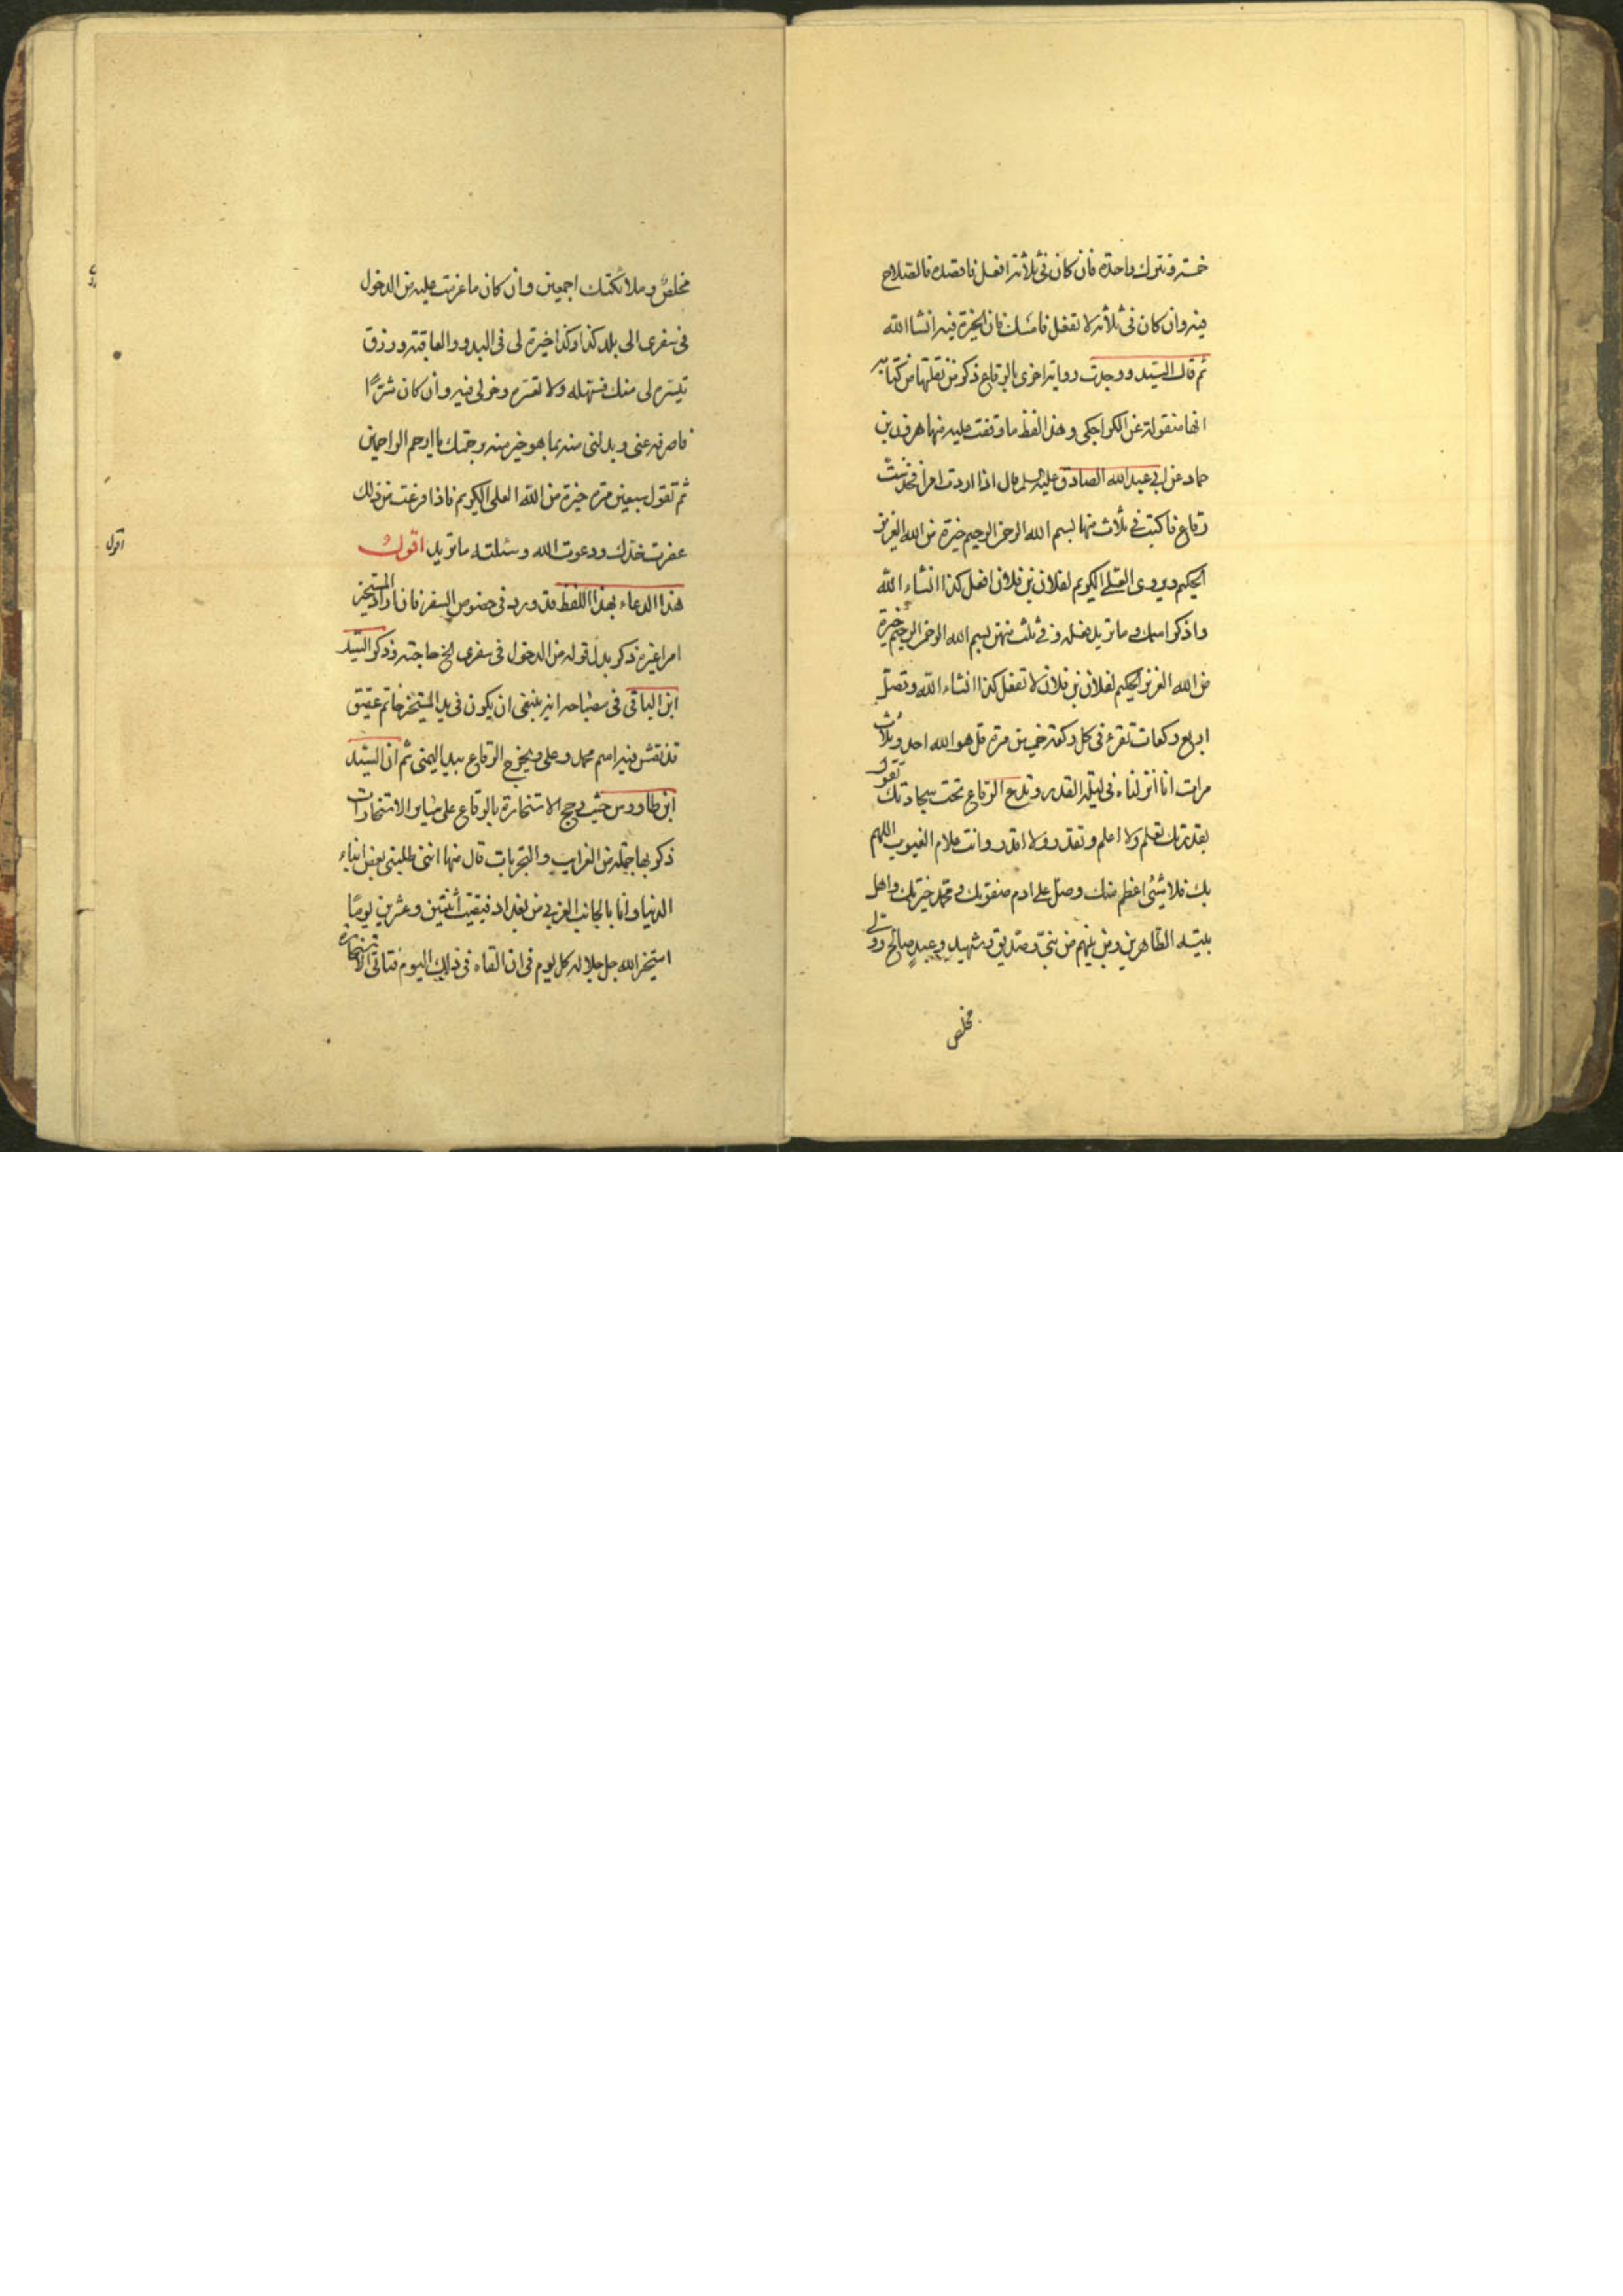 خمسة وتترك واحدة فان كان في ثلاثة افعل فاقصده فالصلاح
فيه وان كان في ثلاثة لا تفعل فامسك فان الخيرة فيه انشا الله
ثم قال السيد ووجدت رواية اخرى بالرقاع ذكر من نقلتها من كتابه
انها منقولة عن الكراجكي وهذا لفظ ما وقفت عليه منها هرون بن
حماد عن ابي عبد الله الصادق عليه السلم قال اذا اردت امرا فخذ ست
رقاع فاكتب في ثلاث منها بسم الله الرحمن الرحيم خيرة من الله العزيز
الحكيم ويروى العلي الكريم لفلان بن فلان افعل كذا انشاء الله
واذكر اسمك وما تريد فعله وفي ثلث منهن بسم الله الرحمن الرحيم خيرة
من الله العزيز الحكيم لفلان بن فلان لا تفعل كذا انشاء الله وتصلي
اربع ركعات تقرء في كل ركعة خمسين مرة قل هو الله احد وثلاث
مرات انا انزلناه في ليلة القدر وتدع الرقاع تحت سجادتك وتقول
بقدرتك تعلم ولا اعلم وتقدر ولا اقدر وانت علام الغيوب اللهم
بك فلا شئ اعظم منك وصل على ادم صفوتك ومحمد خيرتك واهل
بيته الطاهرين ومن بينهم من نبي وصديق وشهيد وعبد صالح وولي
مخلص
مخلص وملائكتك اجمعين وان كان ما عزمت عليه من الدخول
في سفري الى بلد كذا وكذا خيرة لي في البدو والعاقبة ورزق
تيسره لي منك فسهله ولا تعسره وخر لي فيه وان كان شرًا
فاصرفه عني وبدلني منه بما هو خير منه برحمتك يا ارحم الراحمين
ثم تقول سبعين مرة خيرة من الله العلي الكريم فاذا فرغت من ذلك
عفرت خدك ودعوت الله وسئلته ما تريد اقول
هذا الدعاء بهذا اللفظ قد ورد في خصوص السفر فان اراد المستخير
امرا غيره ذكر بدل قوله من الدخول في سفري الخ حاجته وذكر السيد
ابن الباقي في مصباحه انه ينبغي ان يكون في يد المستخير خاتم عقيق
قد نقش فيه اسم محمد وعلي ويخرج الرقاع بيد اليمنى ثم ان السيد
ابن طاووس حيث رجح الاستخارة بالرقاع على ساير الاستخارات
ذكر بها جملة من الغرايب والتجربات قال منها انني طلبني بعض ابناء
الدنيا وانا بالجانب الغربي من بغداد فبقيت اثنتين وعشرين يومًا
استخير الله جل جلاله كل يوم في ان القاه في ذلك اليوم فتاتي الاستخارة
اقول